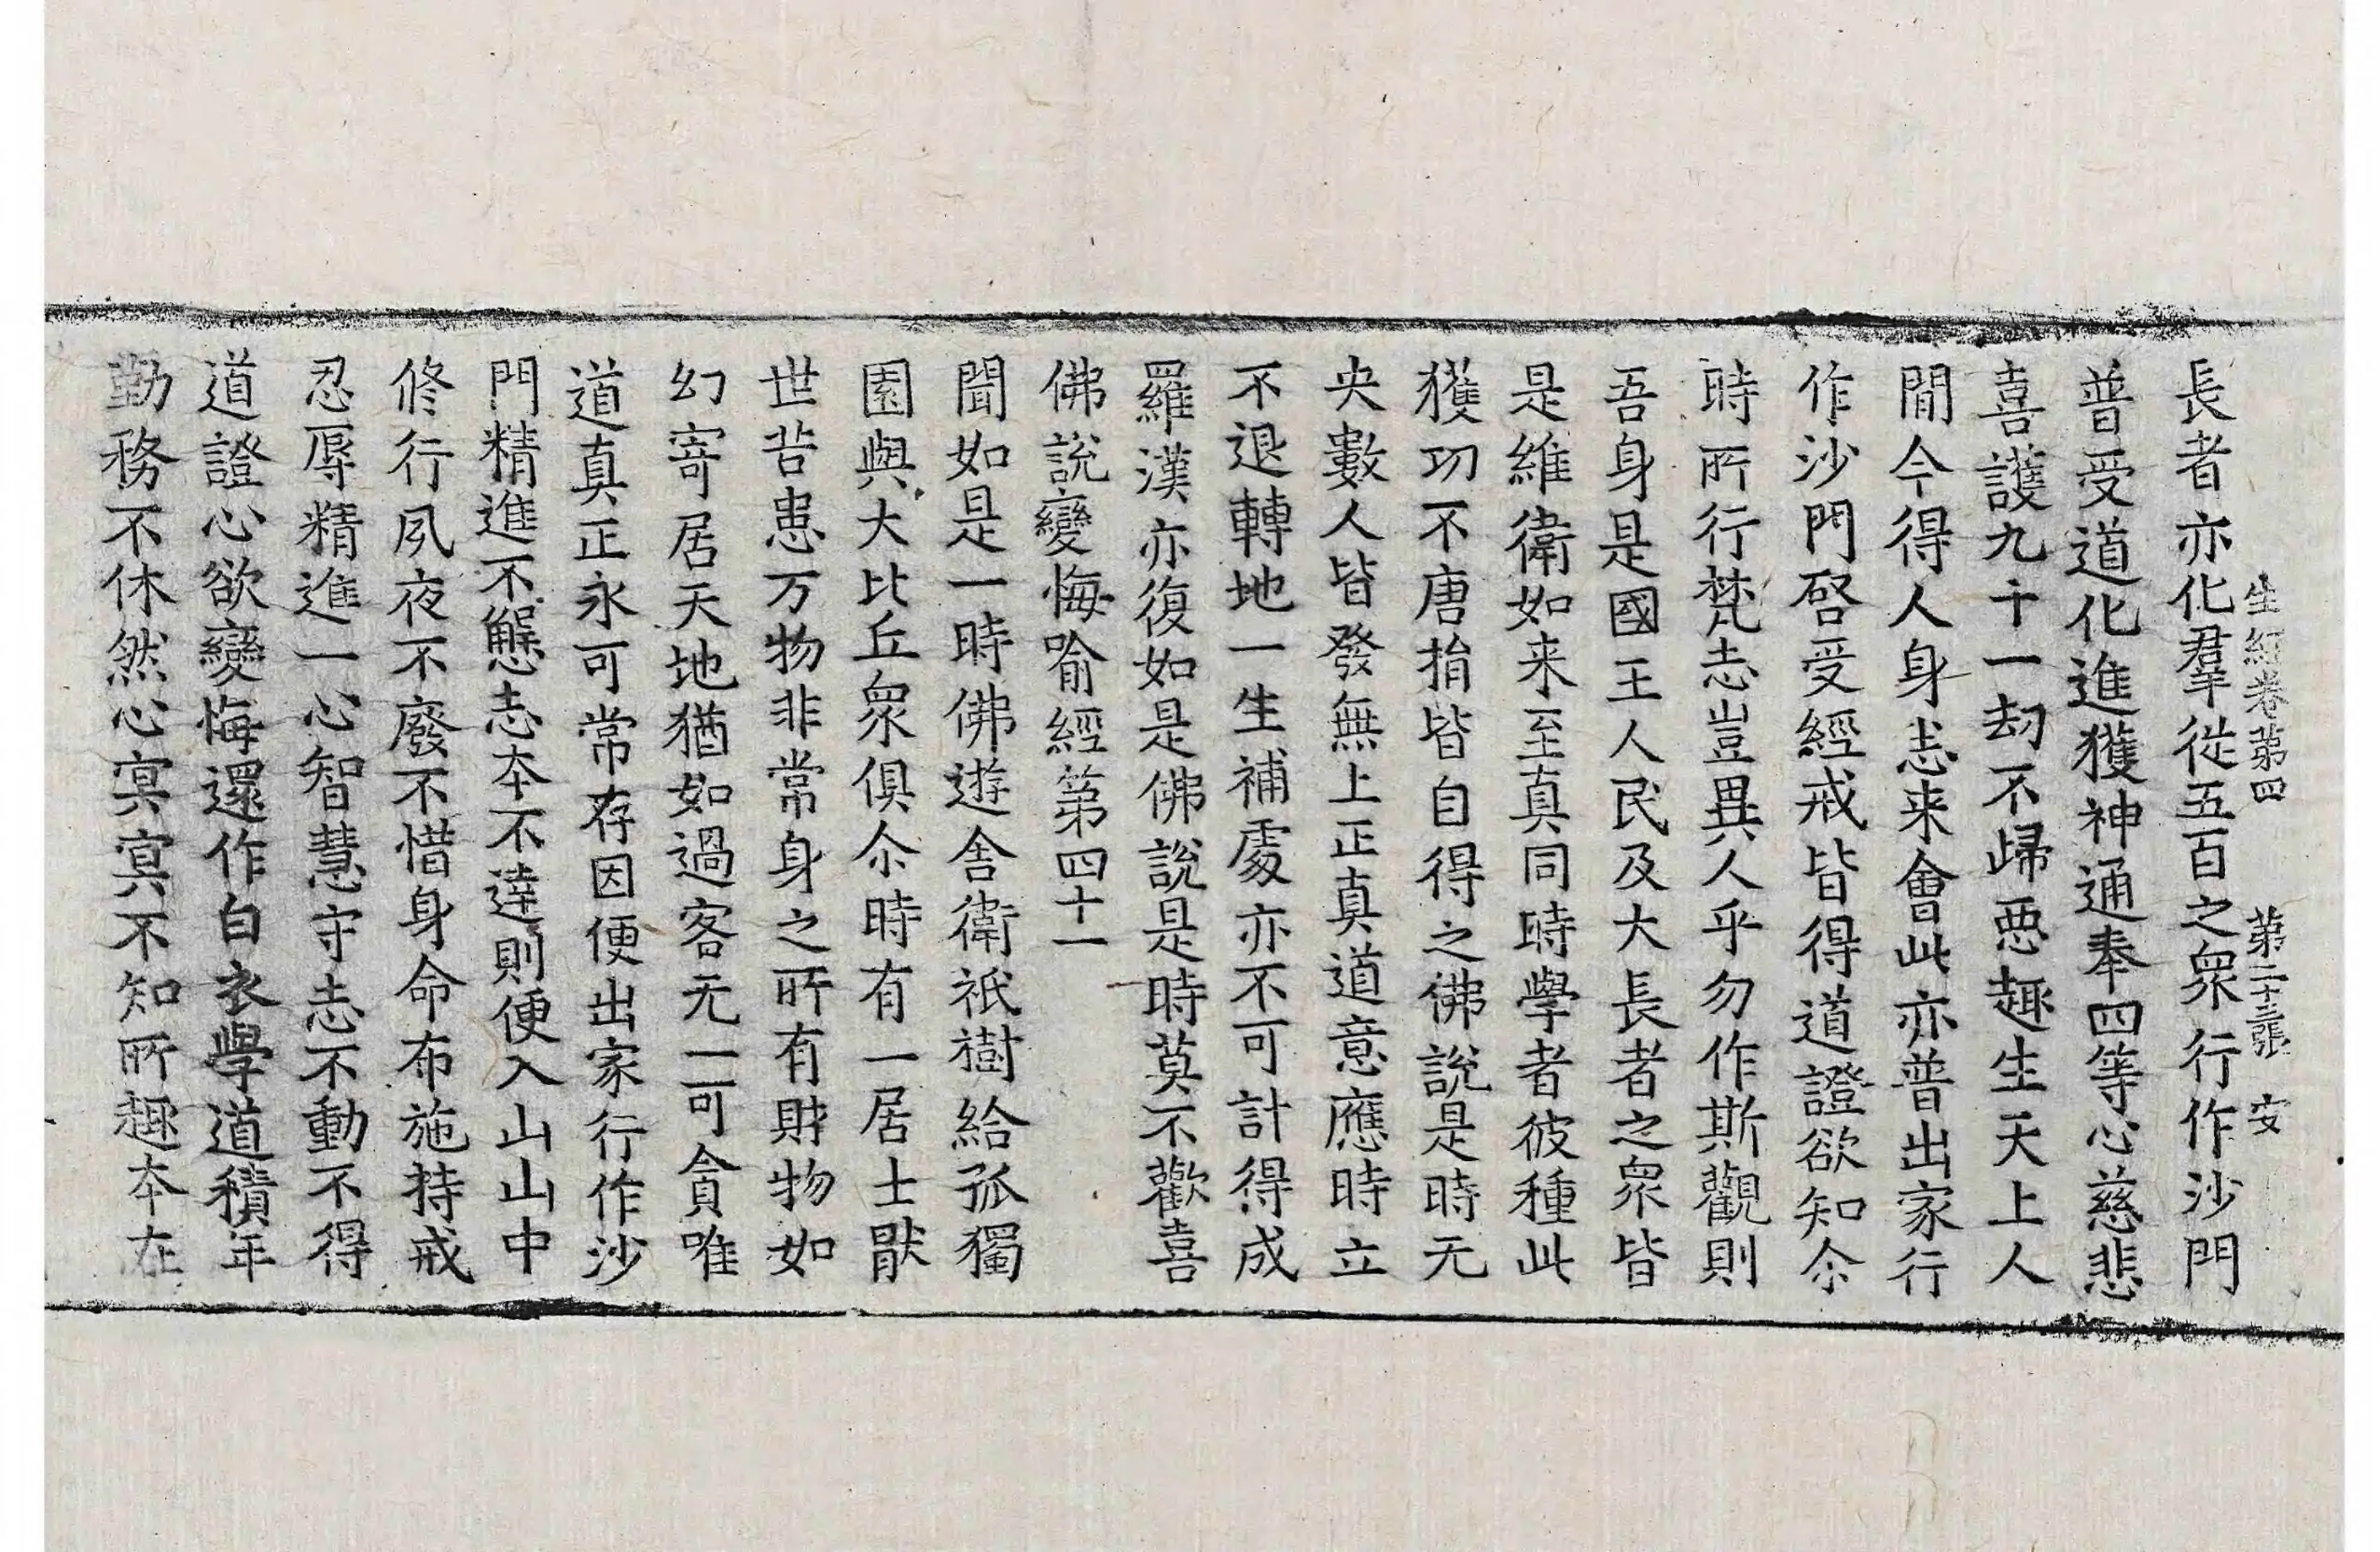 生經卷第四　第二十三張　安
長者亦化羣從五百之衆行作沙門
普受道化進獲神通奉四等心慈悲
喜護九千一劫不歸惡趣生天上人
閒今得人身志来會此亦普出家行
作沙門啓受經戒皆得道證欲知尒
時所行梵志豈異人乎勿作斯觀則
吾身是國王人民及大長者之衆皆
是維衛如来至真同時學者彼種此
獲功不唐捐皆自得之佛說是時无
央數人皆發無上正真道意應時立
不退轉地一生補處亦不可計得成
羅漢亦復如是佛說是時莫不歡喜
佛說變悔喻經第四十一
聞如是一時佛遊舍衛祇樹給孤獨
園與大比丘衆俱尒時有一居士猒
世苦患万物非常身之所有財物如
幻寄居天地猶如過客无一可貪唯
道真正永可常存因便出家行作沙
門精進不懈志本不達則便入山山中
修行夙夜不廢不惜身命布施持戒
忍辱精進一心智慧守志不動不得
道證心欲變悔還作白衣學道積年
勤務不休然心冥冥不知所趣本在